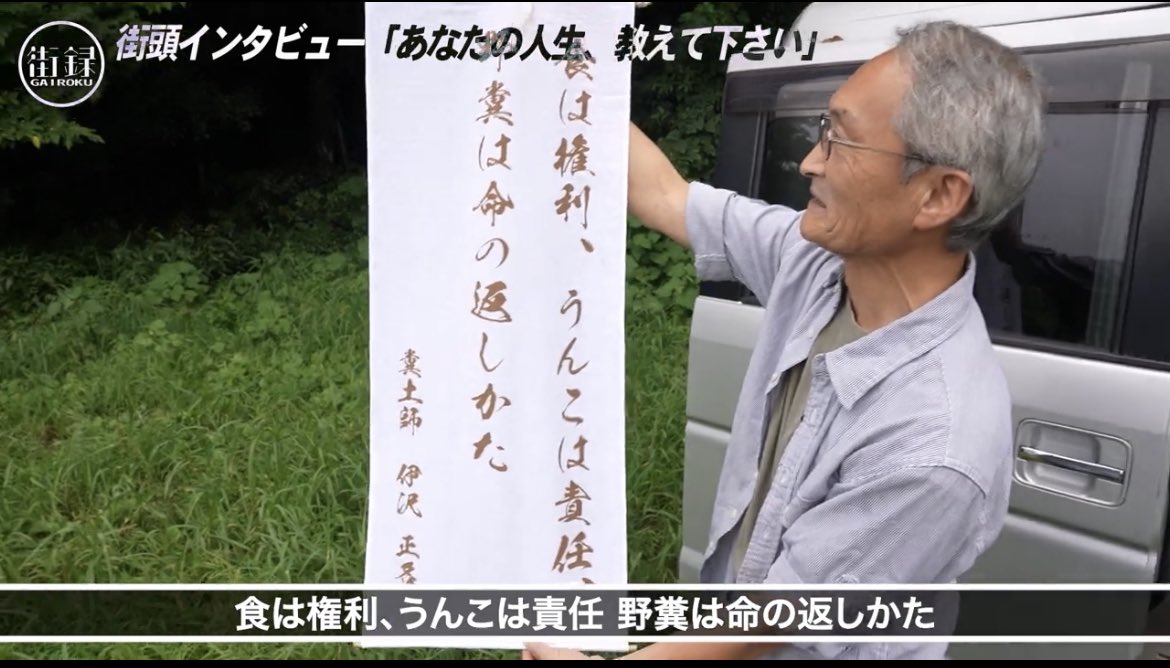 街録
GAIROKU
街頭インタビュー「あなたの人生、教えて下さい」
食は権利、うんこは責任、
野糞は命の返しかた
糞土師 伊沢 正名
食は権利、うんこは責任 野糞は命の返しかた